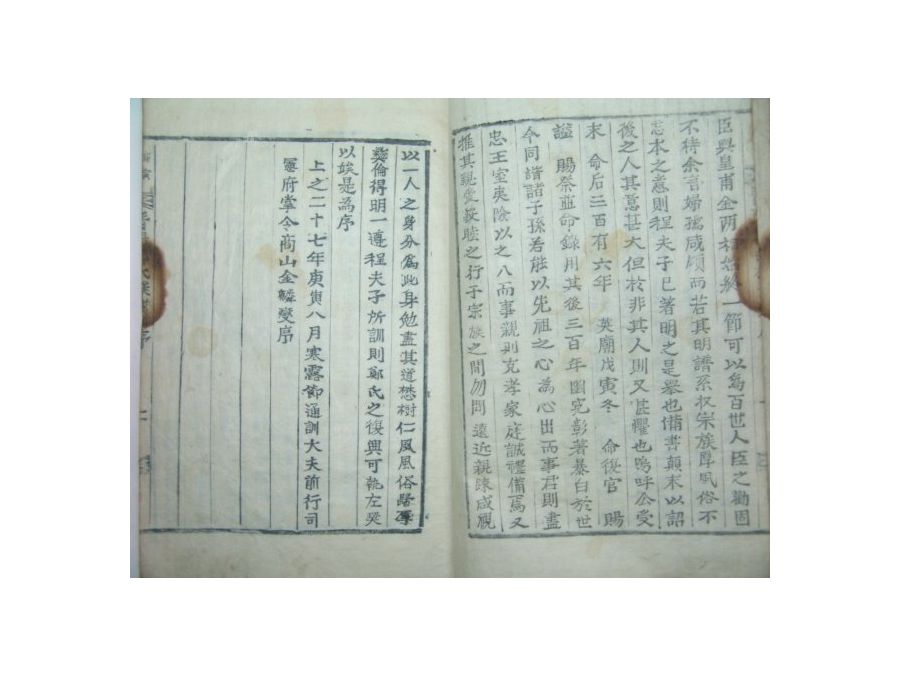 臣與皇甫金兩相始終一節可以爲百世人臣之勸固
不待余言婦孺咸頌而若其明譜系收宗族厚風俗不
忘本之意則程夫子已著明之是擧也備書顚末以詔
後之人其意甚大但於非其人則又甚懼也嗚呼公受
末 命后二百有六年 英廟戊寅冬 命復官 賜
諡 賜祭亟命錄用其後三百年幽寃彰著暴白於世
今同諧諸子孫若能以先祖之心爲心出而事君則盡
忠王室夷險以之入而事親則克孝家庭誠禮備焉又
推其親愛敦睦之行于宗族之間勿問遠近親疎咸視
以一人之身分爲此身勉盡其道懋樹仁風風俗歸厚
彜倫得明一遵程夫子所訓則鄭氏之復興可執左契
以竢是爲序
上之二十七年庚寅八月寒露節通訓大夫前行司
憲府掌令商山金麟燮序